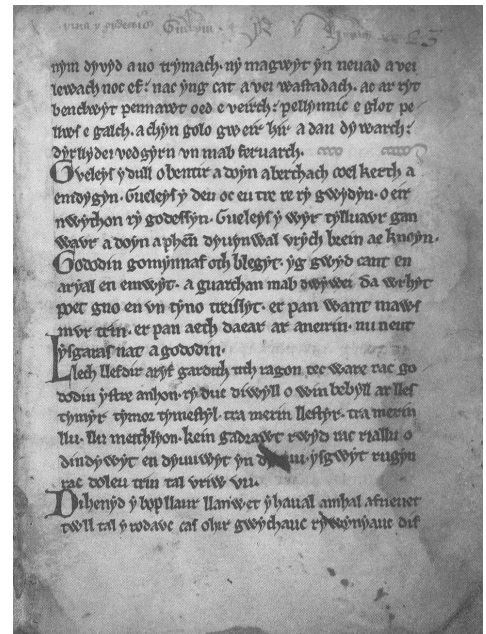 nym dyvyd a uo trymach. ny magwyt yn neuad a vei
lewach noc ef: nac yng cat a vei wastadach. ac ar ryt
benclwyt pennawt oed e veirch: pellynnic e glot pe
llws e galch. a chyn golo gweir hir a dan dywarch:
dyrllydei vedgyrn vn mab feruarch.
Gueleys y dull o bentir a doyn aberthach coel kerth a
emdygyn. Gueleys y deu oc eu tre re ry gwydyn. o eir
nwython ry godessyn. Gueleys y wyr tylluavr gan
wavr a doyn a phen dyuynwal vrych brein ae knoyn.
Gododin gomynnaf oth blegyt. yg gwyd cant en
aryal en emwyt. a guarchan mab dwywei da wrhyt
poet gno en vn tyno treissyt. er pan want maws
mvr trin. er pan aeth daear ar aneirin. nu neut
ysgaras nat a gododin.
Llech llefdir aryf gardith tith ragon tec ware rac go
dodin ystre anhon. ry duc diwyll o win bebyll ar lles
tymyr tymor tymestyl. tra merin llestyr. tra merin
llu. llu meithlyon. kein gadrawt rwyd rac riallu o
dindywyt en dyuuwyt yn ysgwyt rugyn
rac doleu trin tal vriw vu.
Dihenyd y bop llaur llanwet y haual amhal afneuet
twll tal y rodauc cas ohir gwychauc rywynyauc dif